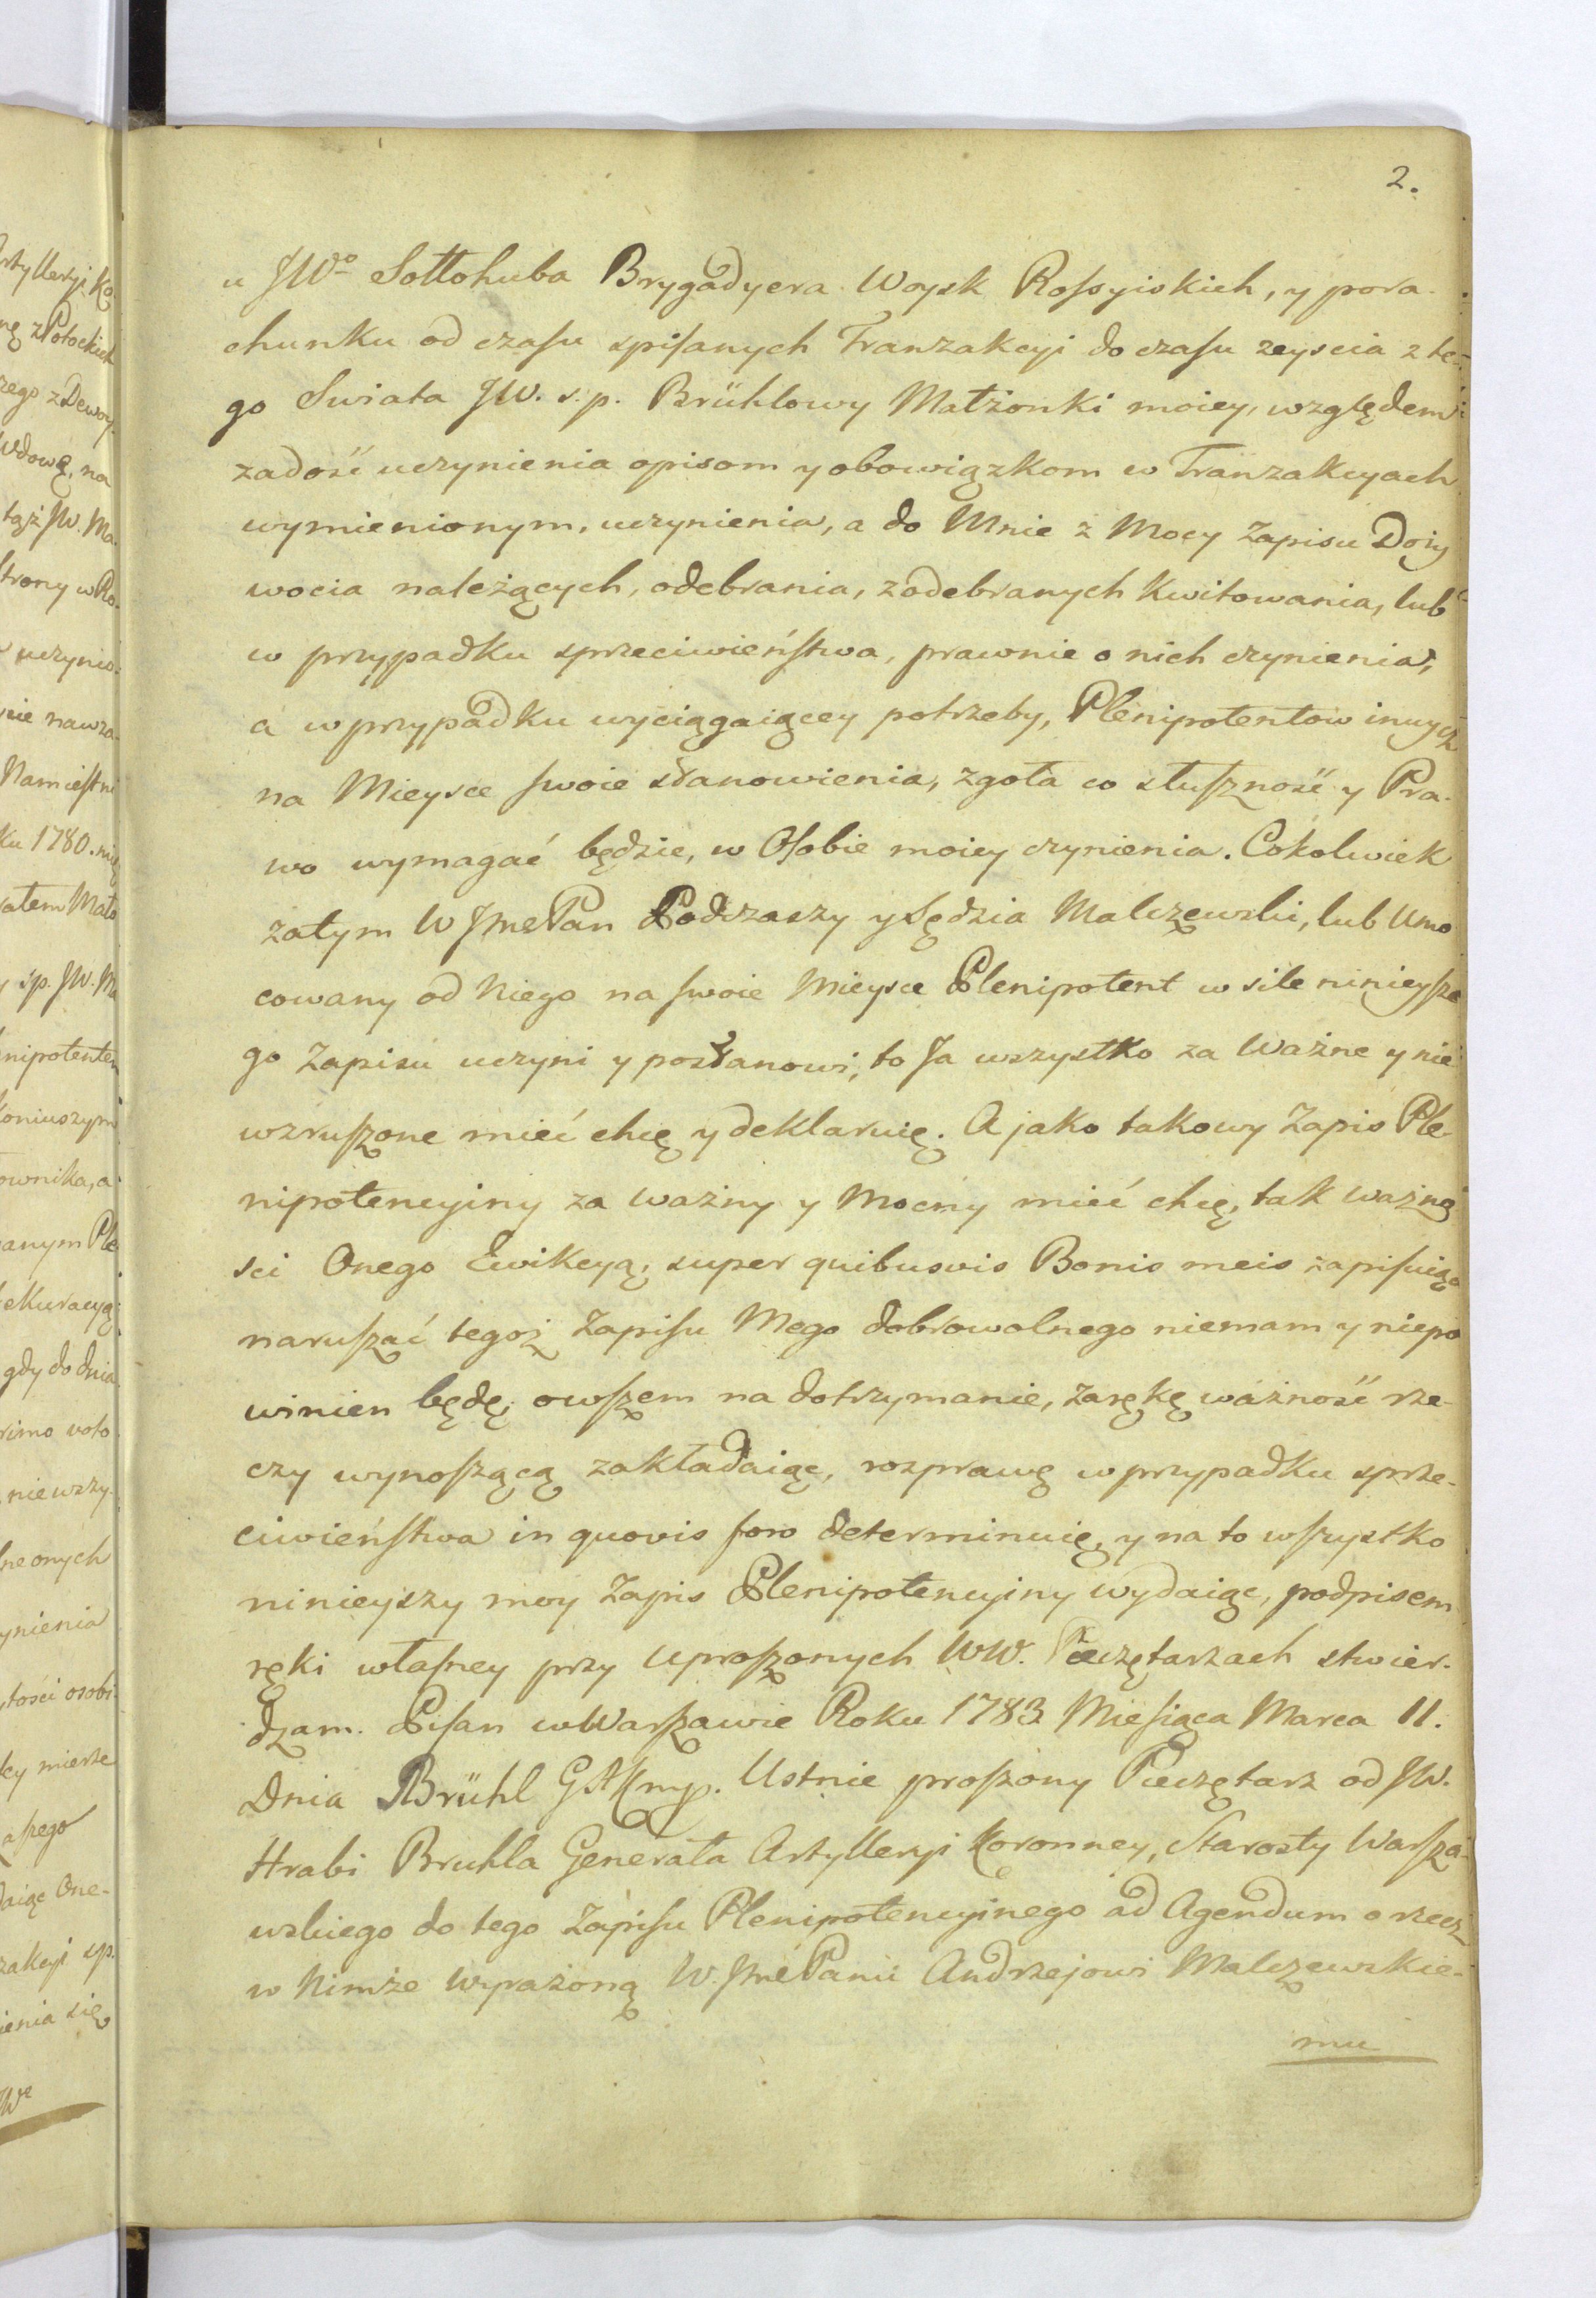 2.
u JWo Sołłohuba Brygadyera Woysk Rossyiskich, y pora-
chunku od czasu spisanych Tranzakcyi do czasu zeyscia z te-
go Swiata JW. s. p. Brühlowy Małżonki moiey, względem
zadość uczynienia opisom y obowiązkom w Tranzakcyach
wymienionym, uczynienia, a do Mnie z Mocy Zapisu Doży
wocia należących, odebrania, z odebranych kwitowania, lub
w przypadku sprzeciwieństwa, prawnie o nich czynienia,
a w przypadku wyciągaiącey potrzeby, Plenipotentow innych
na Mieysce swoie stanowienia, zgoła co słuszność y Pra-
wo wymagać będzie, w Osobie moiey czynienia. Cokolwiek
zatym W JmcPan Podczaszy y Sędzia Malczewski, lub Umo
cowany od Niego na swoie Mieysce Plenipotent w sile ninieysze
go Zapisu uczyni y postanowi, to Ja wszystko za Ważne y nie
wzruszone mieć chcę y deklaruię. A jako takowy Zapis Ple
nipotencyiny za ważny y Mocny mieć chcę, tak ważno
sci Onego Ewikcyą, super quibusvis Bonis meis zapisuią
naruszać tegoż Zapisu Mego dobrowolnego niemam y niepo
winien będę, owszem na dotrzymanie, Zarękę ważność rze-
czy wynoszącą zakładaiąc, rozprawę w przypadku sprze-
ciwieństwa in quovis foro determinuię, y na to wszystko
ninieyszy moy Zapis Plenipotencyiny wydaiąc, podpisem
ręki własney przy Uproszonych WW. Pieczętarzach stwier-
dzam. Pisan w Warszawie Roku 1783 Miesiąca Marca 11.
Dnia Brühl GAK mp. Ustnie proszony Pieczętarz od JW.
Hrabi Bruhla Generała Artylleryi Koronney, Starosty Warsza-
wskiego do tego Zapisu Plenipotencyinego ad Agendum o rzecz
w Nimże wyrażoną W. JmćPanu Andrzejowi Malczewskie-
mu